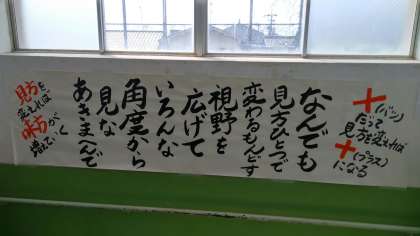 ×(バツ)
だって
見方を変えれば
+(プラス)
になる
なんでも
見方ひとつで
変わるもんどす
視野を
広げて
いろんな
角度から
見な
あきまへんで
見方を
変えれば
味方が
増えていく